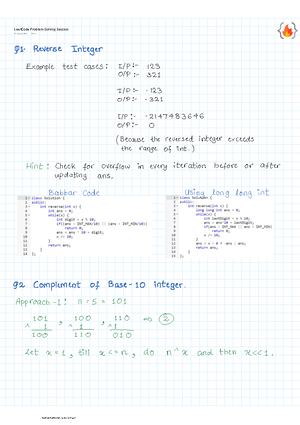 LeetCode Problem Solving Session
Q1. Reverse Integer
Example test cases: I/P :- 123
O/P :- 321
I/P :- -123
O/P :- -321
I/P :- -2147483646
O/P :- 0
(Because the reversed integer exceeds
the range of int.)
Hint: Check for overflow in every iteration before or after
updating ans.
Babbar Code
class Solution {
public:
int reverse(int x) {
int ans = 0;
while(x) {
int digit = x % 10;
if(ans > INT_MAX/10 || ans < INT_MIN/10)
return 0;
ans = ans * 10 + digit;
x /= 10;
}
return ans;
}
};
Using long long int
class Solution {
public:
int reverse(int x) {
long long int ans = 0;
while(x) {
ans = ans*10 +
return 0;
x /= 10;
}
}
};
Q2. Complement of Base-10 integer.
Approach-1: n = 5 = 101
101 , 100 , 110 => 2
^ 1 ^ 1 ^ 1
100 110 010
Let x = 1, till x <= n, do n ^ x and then x << 1.